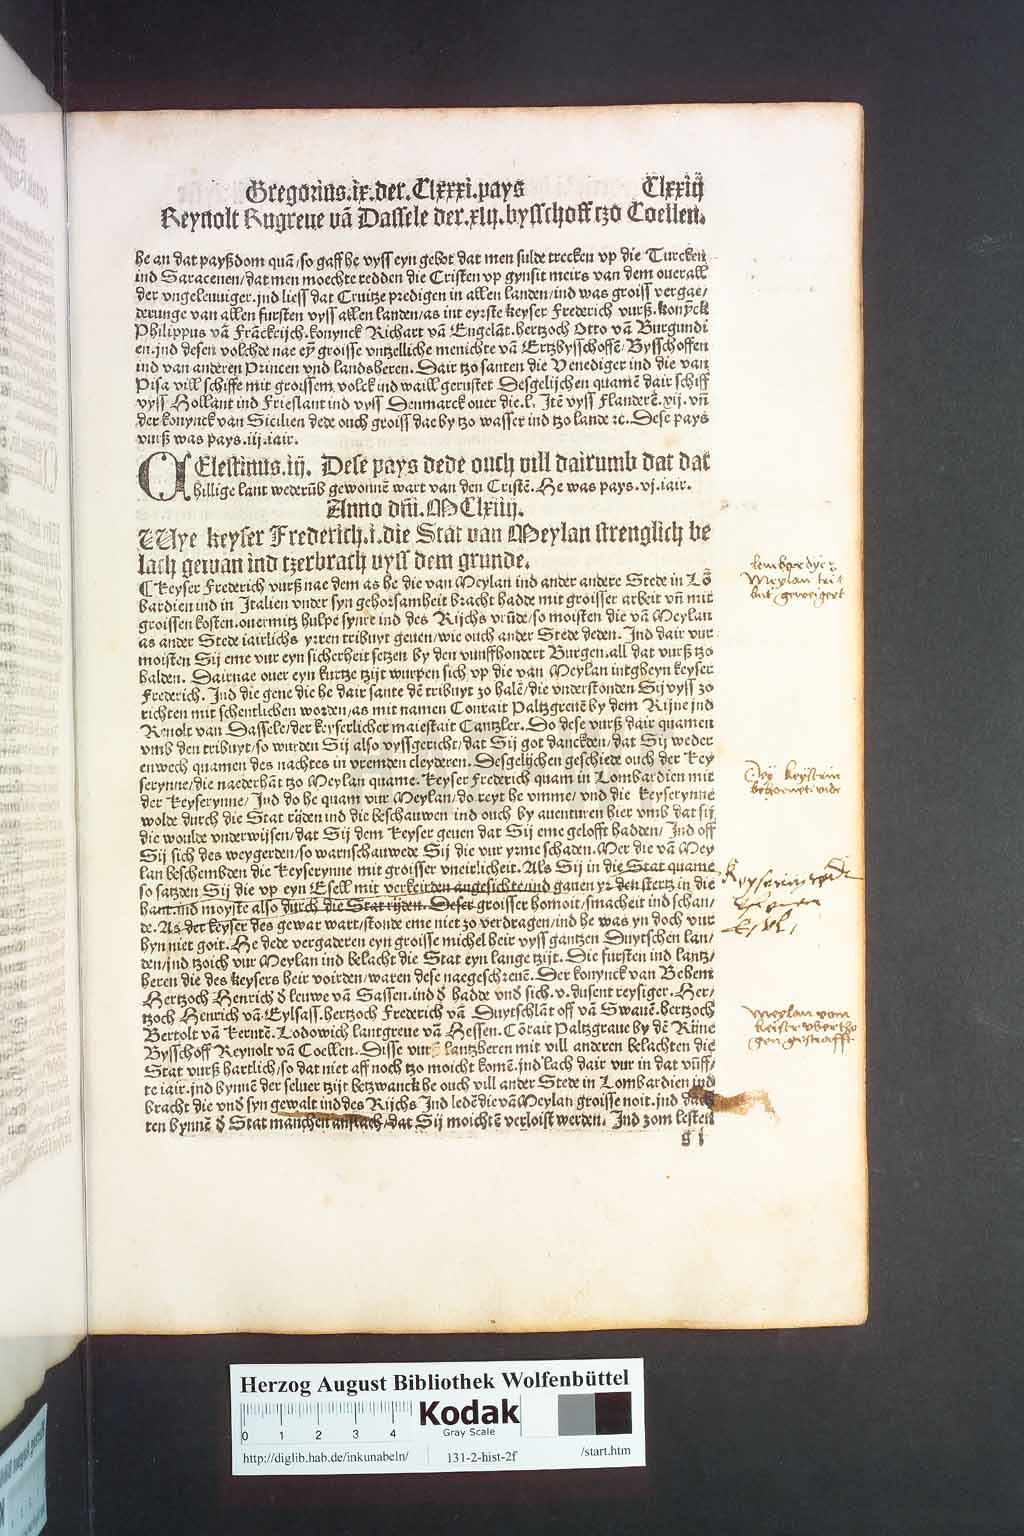 Gregorius.ix.der.Clxxxi.pays Clxxiij
Reynolt Rugreue vā Dassele der.xlij.bysschoff tzo Coellen.
he an dat payßdom quā/so gaff he vyss eyn gebot dat men sulde trecken vp die Turcken
ind Saracenen/dat men moechte redden die Cristen vp gynsit meirs van dem ouerall
der vngeleuuiger.jnd liess dat Cruitze predigen in allen landen/ind was groiss vergae/
derunge van allen fursten vyss allen landen/as int eyrste keyser Frederich vurß.konyck
Philippus vā Franckrijch.konynck Richart vā Engelāt.hertzoch Otto vā Burgundi
en.jnd desen volchde nae eȳ groisse vntzelliche menichte vā Ertzbysschoffē/Bysschoffen
ind van anderen Princen vnd landsheren. Dair tzo santen die Venediger ind die van
Pisa vill schiffe mit groissem volck ind waill gerustet Desgelijchen quamē dair schiff
vyss Hollant ind Frieslant ind vyss Denmarck ouer die.l. Itē vyss Flanderē.xij.vñ
der konynck van Sicilien dede ouch groiss dae by tzo wasser ind tzo lande ꝛc. Dese pays
vurß was pays.iij.iair.
CElestinus.iij. Dese pays dede ouch vill dairumb dat dat
hillige lant wederūb gewonnē wart van den Cristē. He was pays.vj.iair.
Anno dñi.MClxiiij.
Wye keyser Frederich.i.die Stat van Meylan strenglich be
lach gewan ind tzerbrach vyss dem grunde.
Keyser Frederich vurß nae dem as he die van Meylan ind ander andere Stede in Lō
bardien ind in Italien vnder syn gehorsamheit bracht hadde mit groisser arbeit vñ mit
groissen kosten.ouermitz hulpe synre ind des Rijchs vrūde/so moisten die vā Meylan
as ander Stede iairlichs yren tribuyt geuen/wie ouch ander Stede deden. Ind dair vur
moisten Sij eme vur eyn sicherheit setzen by den vunffhondert Burgen.all dat vurß tzo
halden. Dairnae ouer eyn kurtze tzijt wurpen sich vp die van Meylan intgheyn keyser
Frederich. Ind die gene die he dair sante dē tribuyt zo halē/die vnderstonden Sij vyss zo
richten mit schentlichen worden/as mit namen Conrait Paltzgreuē by dem Rijne jnd
Renolt van Dassele/der keyserlicher maiestait Cantzler. Do dese vurß dair quamen
vmb den tribuyt/so wurden Sij also vyssgericht/dat Sij got danckden/dat Sij weder
enwech quamen des nachtes in vremden cleyderen. Desgelijchen geschiede ouch der Key
serynne/die naederhāt tzo Meylan quame. Keyser Frederich quam in Lombardien mit
der Keyserynne/Jnd do he quam vur Meylan/do reyt he vmme/vnd die keyserynne
wolde durch die Stat rijden ind die beschauwen ind ouch by auenturen hier vmb dat sij
die woulde vnderwijsen/dat Sij dem Keyser geuen dat Sij eme gelofft hadden/Ind off
Sij sich des weygerden/so warnschauwede Sij die vur yrme schaden. Mer die vā Mey
lan beschembden die Keyserynne mit groisser vneirlicheit. Als Sij in die Stat quame
so satzden Sij die vp eyn Esell mit verkeirden angesichte/ind gauen yr den stertz in die
hant.ind moyste also durch die Stat rijden. Deser groisser homoit/smacheit ind schan/
de. As der keyser des gewar wart/stonde eme niet zo verdragen/ind he was yn doch vur
hyn niet goit. He dede vergaderen eyn groisse michel heir vyss gantzen Duytschen lan/
den/jnd tzoich vur Meylan ind belacht die Stat eyn lange tzijt. Die fursten ind lantz/
heren die des keysers heir voirden/waren dese naegeschreuē. Der konynck van Behem
Hertzoch Henrich ð leuwe vā Sassen.ind ð hadde vnð sich.v.dusent reysiger. Her/
tzoch Henrich vā Eylsass.hertzoch Frederich vā Duytschlāt off vā Swauē.hertzoch
Bertolt vā Kerntē. Lodowich lantgreue vā Hessen. Cōrait Paltzgraue by dē Rijne
Bysschoff Reynolt vā Coellen. Disse vurß lantzheren mit vill anderen belachten die
Stat vurß hartlich/so dat niet aff noch tzo moicht komē.jnd lach dair vur in dat vūff/
te iair.jnd bynnē der seluer tzijt betzwanck he ouch vill ander Stede in Lombardien ind
bracht die vnð syn gewalt ind des Rijchs Ind ledē die vā Meylan groisse noit.jnd dach
ten bynnē ð Stat manchen anslach/dat Sij moichtē verloist werden. Jnd zom lesten
g i
Meylan tri
but geweigert
Meylan vom
Herzog August Bibliothek Wolfenbüttel
0 1 2 3 4
Kodak
Gray Scale
http://diglib.hab.de/inkunabeln/ 131-2-hist-2f /start.htm